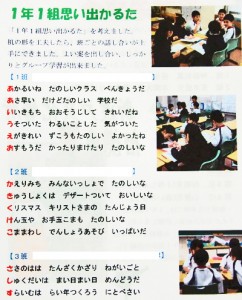 1年1組思い出かるた
「1年1組思い出かるた」を考えました。
机の形を工夫したら、班ごとの話し合いが上
手にできました。よい案を出し合い、しっか
りとグループ学習が出来ました。
【1班
あかるいね　たのしいクラス　べんきょうだ
あさ早い　だけどたのしい　学校だ
いいきもち　おおそうじして　きれいだね
うそついた　わるいことした　気がついた
えがきれい　ずこうもたのしい　よかったね
おすもうだ　かったりまけたり　たのしいな
【2班
かえりみち　みんないっしょで　たのしいな
きゅうしょくは　デザートついて　おいしいな
クリスマス　キリストさまの　たんじょう日
けん玉や　お手玉こまも　たのしいな
こままわし　でんしょうあそび　いっぱいだ
【3班
さきのはは　たんざくかざり　ねがいごと
しゅくだいは　まい日まい日　めんどうだ
すらいむは　らい年つくろう　にとべさい